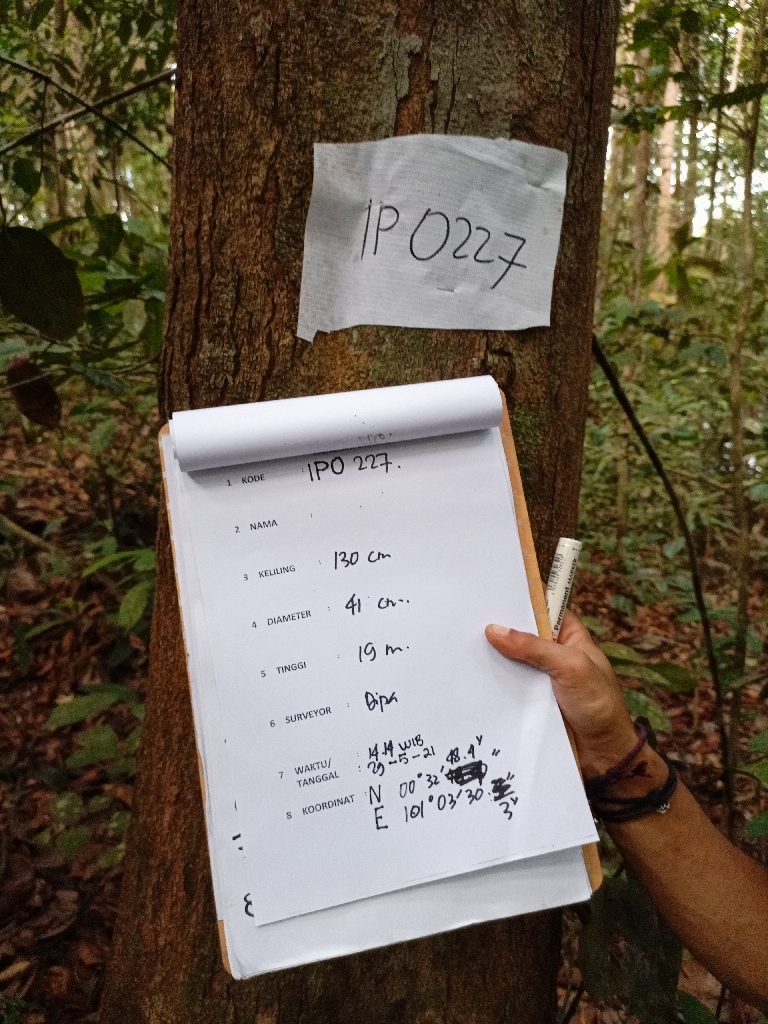 IPO227
1 KODE : IPO 227.
2 NAMA :
3 KELILING : 130 cm
4 DIAMETER : 41 cm.
5 TINGGI : 19 m.
6 SURVEYOR : Dipa
7 WAKTU/ : 14.14 WIB
TANGGAL : 29-5-21
8 KOORDINAT : N 00° 32' 48.4"
E 101° 03' 30. 3"
Permanent Marker